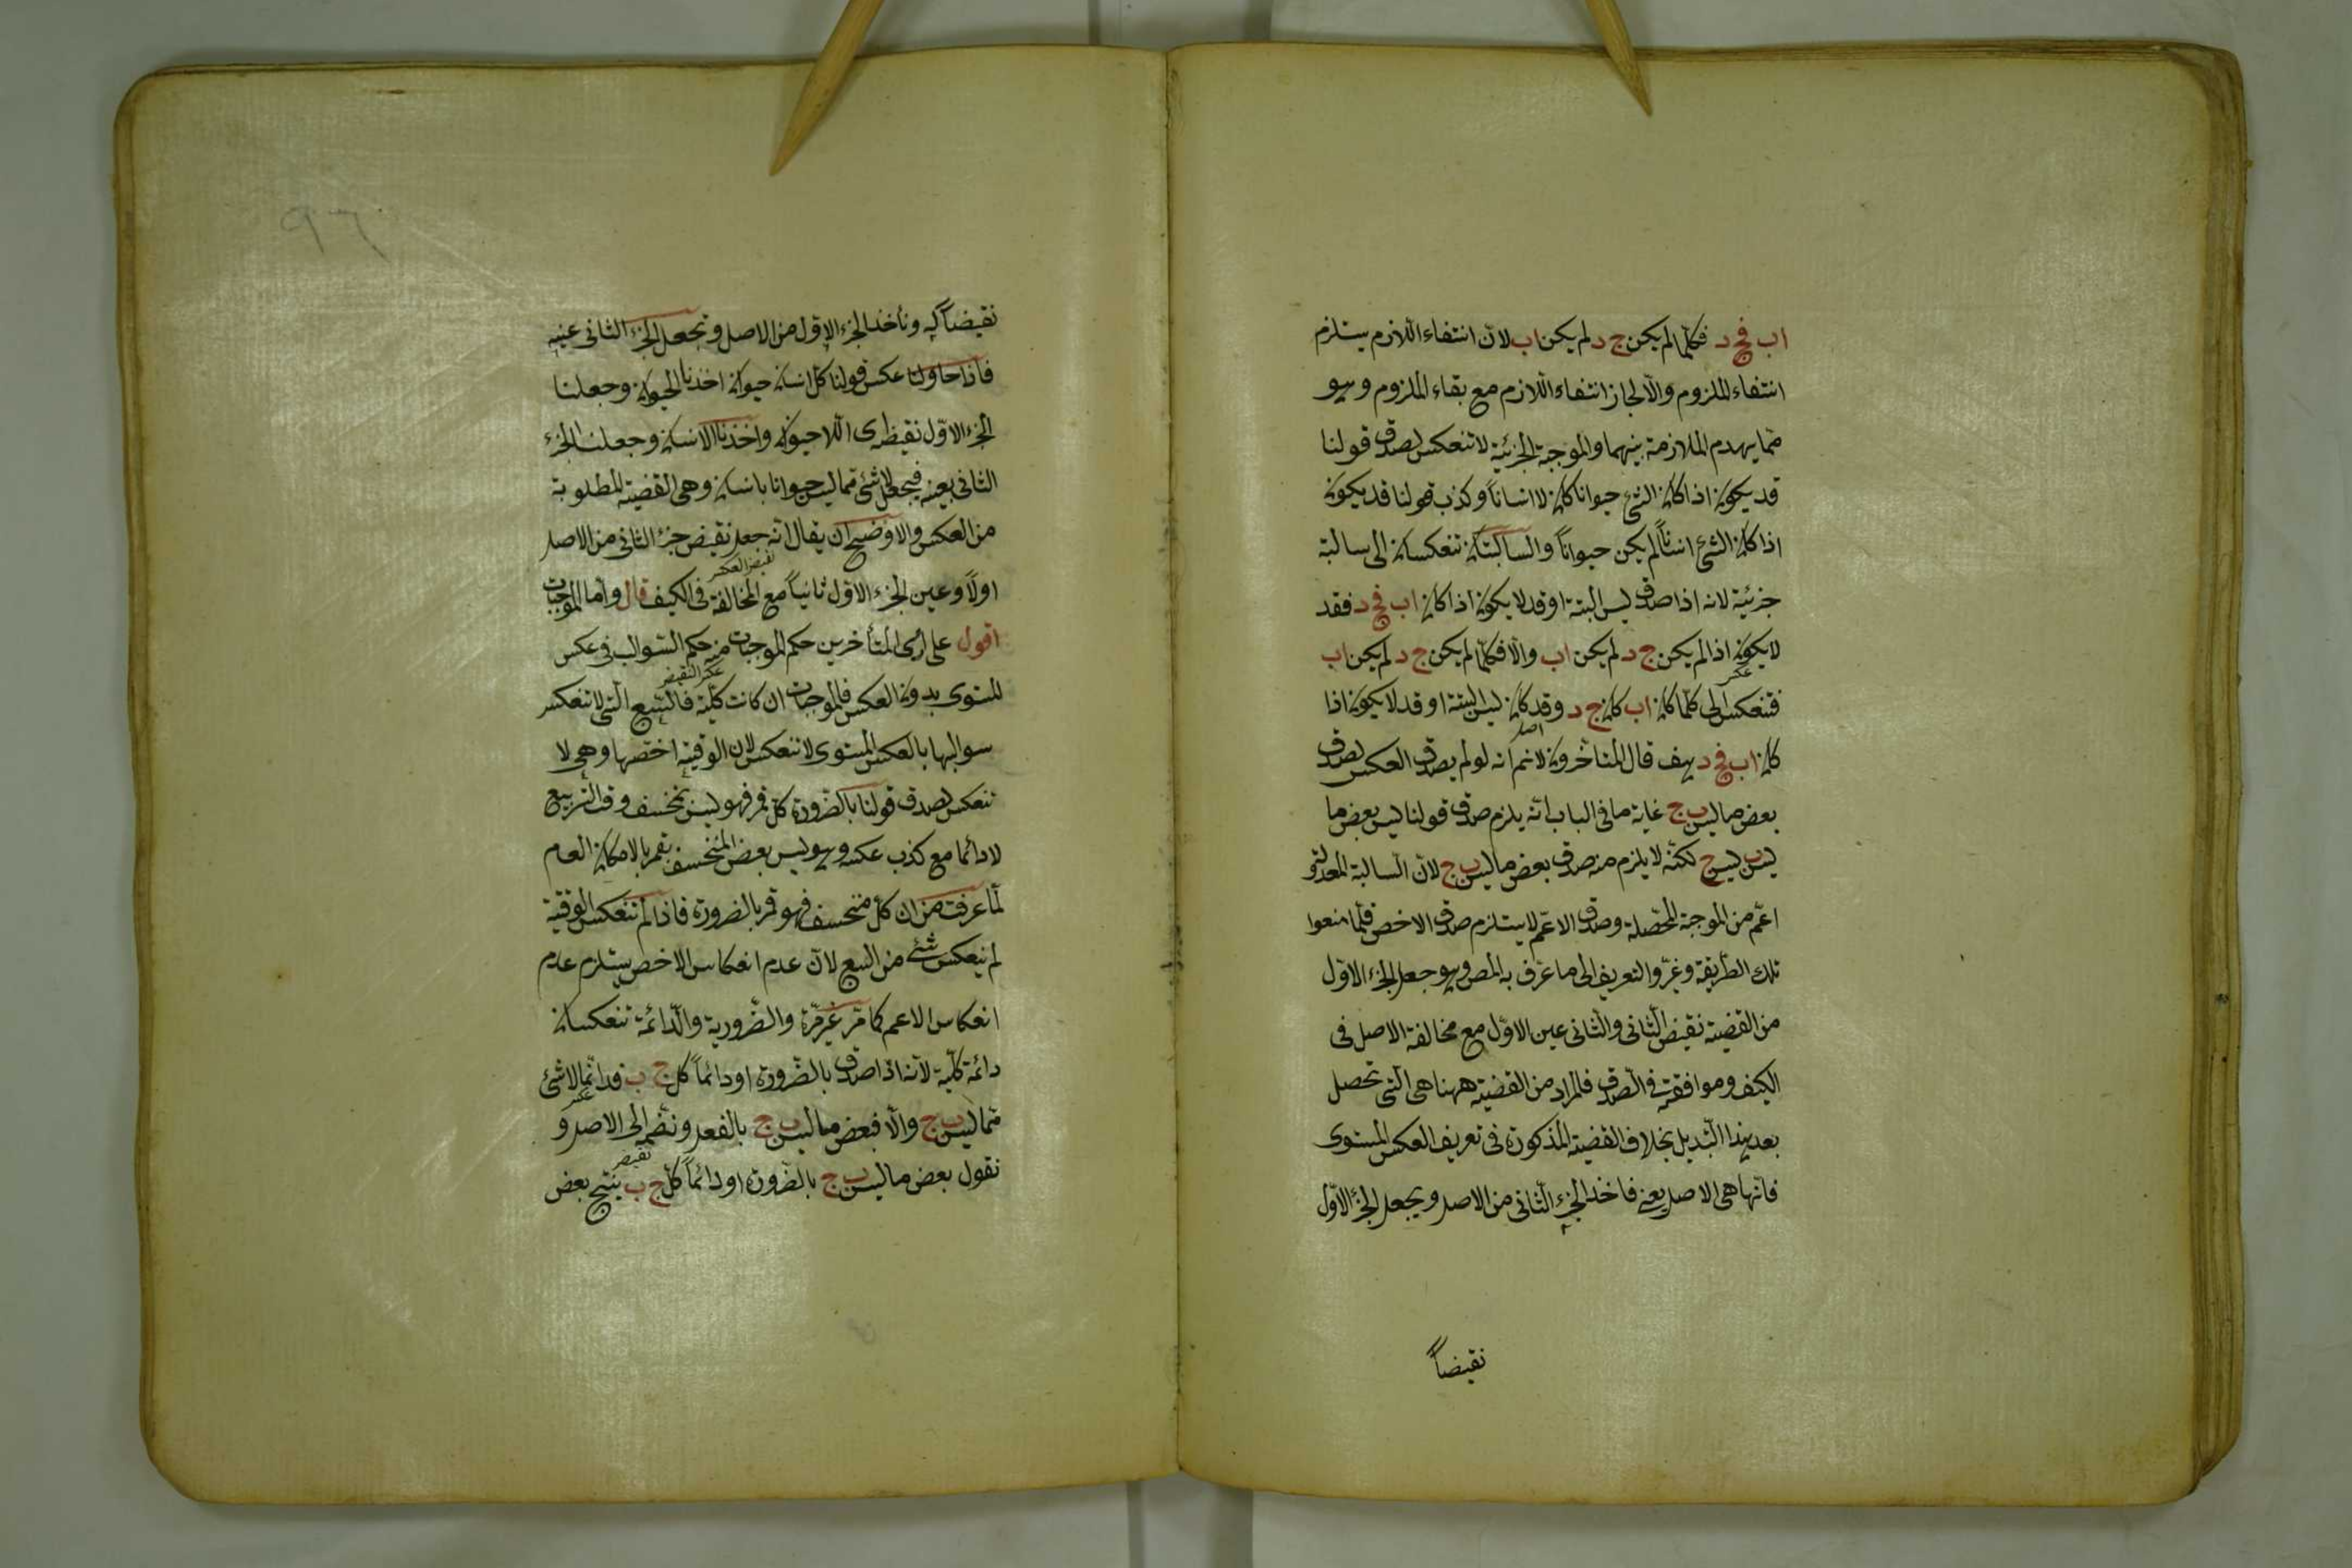 اب فج د فكلما لم يكن ج د لم يكن اب لان انتفاء اللازم يستلزم
انتفاء الملزوم والا لجاز انتفاء اللازم مع بقاء الملزوم وهو
مما يهدم الملازمة بينهما والموجبة الجزئية لا تنعكس لصدق قولنا
قد يكون اذا كان الشئ حيوانا كان لا انساناً وكذب قولنا قد يكون
اذا كان الشئ انساناً لم يكن حيواناً والسالبتان تنعكسان الى سالبة
جزئية لانه اذا صدق ليس البتة او قد لا يكون اذا كان اب فج د فقد
لا يكون اذا لم يكن ج د لم يكن اب والا فكلما لم يكن ج د لم يكن اب
عكس
فتنعكس الى كلما كان اب كان ج د وقد كان ليس البتة او قد لا يكون اذا
اصل
كان اب فج د هف قال المتأخرون لا نم انه لو لم يصدق العكس لصدق
بعض ما ليس ب ج غاية ما فى الباب انه يلزم صدق قولنا ليس بعض ما
ليس ب ليس ج لكنه لا يلزم منه صدق بعض ما ليس ب ج لان السالبة المعدولة
اعم من الموجبة المحصلة وصدق الاعم لا يستلزم صدق الاخص فلما منعوا
تلك الطريقة وغيروا التعريف الى ما عرف به المص وهو جعل الجزء الاول
من القضية نقيض الثانى والثانى عين الاول مع مخالفة الاصل فى
الكيف وموافقته فى الصدق فالمراد من القضية ههنا هى التى تحصل
بعد هذا التبديل بخلاف القضية المذكورة فى تعريف العكس المستوى
فانها هى الاصل يعنى فاخذ الجزء الثانى من الاصل ويجعل الجزء الاول
نقيضاً
نقيضاً له ونأخذ الجزء الاول من الاصل وتجعل الجزء الثانى عينه
فاذا حاولنا عكس قولنا كل انسان حيوان اخذنا الحيوان وجعلنا
الجزء الاول نقيضه اى اللاحيوان واخذنا الانسان وجعلنا الجزء
الثانى بعينه فيحصل لا شئ مما ليس حيوانا بانسان وهى القضية المطلوبة
من العكس والاوضح ان يقال انه جعل نقيض جزء الثانى من الاصل
نقيض العكس
اولاً وعين الجزء الاول ثانياً مع المخالفة فى الكيف قال واما الموجبات
اقول على رأى المتأخرين حكم الموجبات منه حكم السوالب فى عكس
عكس النقيض
المستوى بدون العكس فالموجبات ان كانت كلية فالسبع التى لا تنعكس
سوالبها بالعكس المستوى لا تنعكس لان الوقتية اخصها وهى لا
تنعكس لصدق قولنا بالضرورة كل قمر فهو ليس بمنخسف وقت التربيع
لا دائما مع كذب عكسه وهو ليس بعض المنخسف بقمر بالامكان العام
لما عرفت من ان كل منخسف فهو قمر بالضرورة فاذا لم تنعكس الوقتية
لم ينعكس شئ من السبع لان عدم انعكاس الاخص يستلزم عدم
انعكاس الاعم كما مر غير مرة والضرورية والدائمة تنعكسان
دائمة كلية لانه اذا صدق بالضرورة او دائماً كل ج ب فدائما لا شئ
عكس
مما ليس ب ج والا فبعض ما ليس ب ج بالفعل ونضمه الى الاصل و
نقيض
نقول بعض ما ليس ب ج بالضرورة او دائماً كل ج ب ينتج بعض